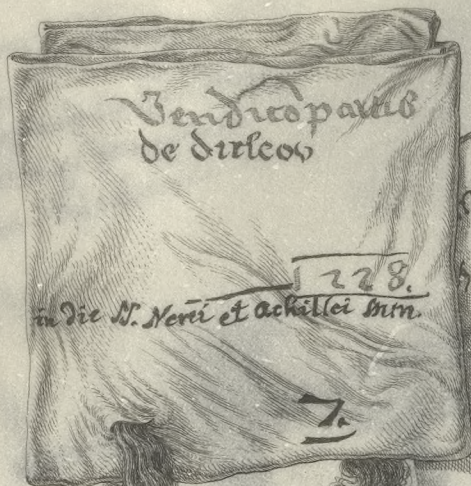 Vendico partis
de dirlcov
1228.
in die SS. Nerei et Achillei Mm.
7.